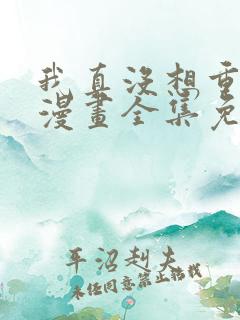 我真沒想重
漫畫全集免
平沼赳夫
未经同意禁止转载